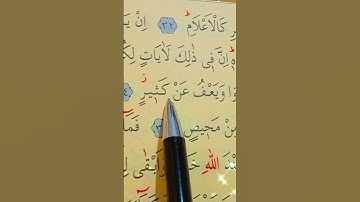 كَالْاَعْلَامِۜ ﴿٣٢﴾ اِنْ
اِنَّ ف۪ي ذٰلِكَ لَاٰيَاتٍ
وَيَعْفُ عَنْ كَث۪يرٍۘ
مِنْ مَح۪يصٍ
اللّٰهِ خَيْرٌ وَاَبْقٰى